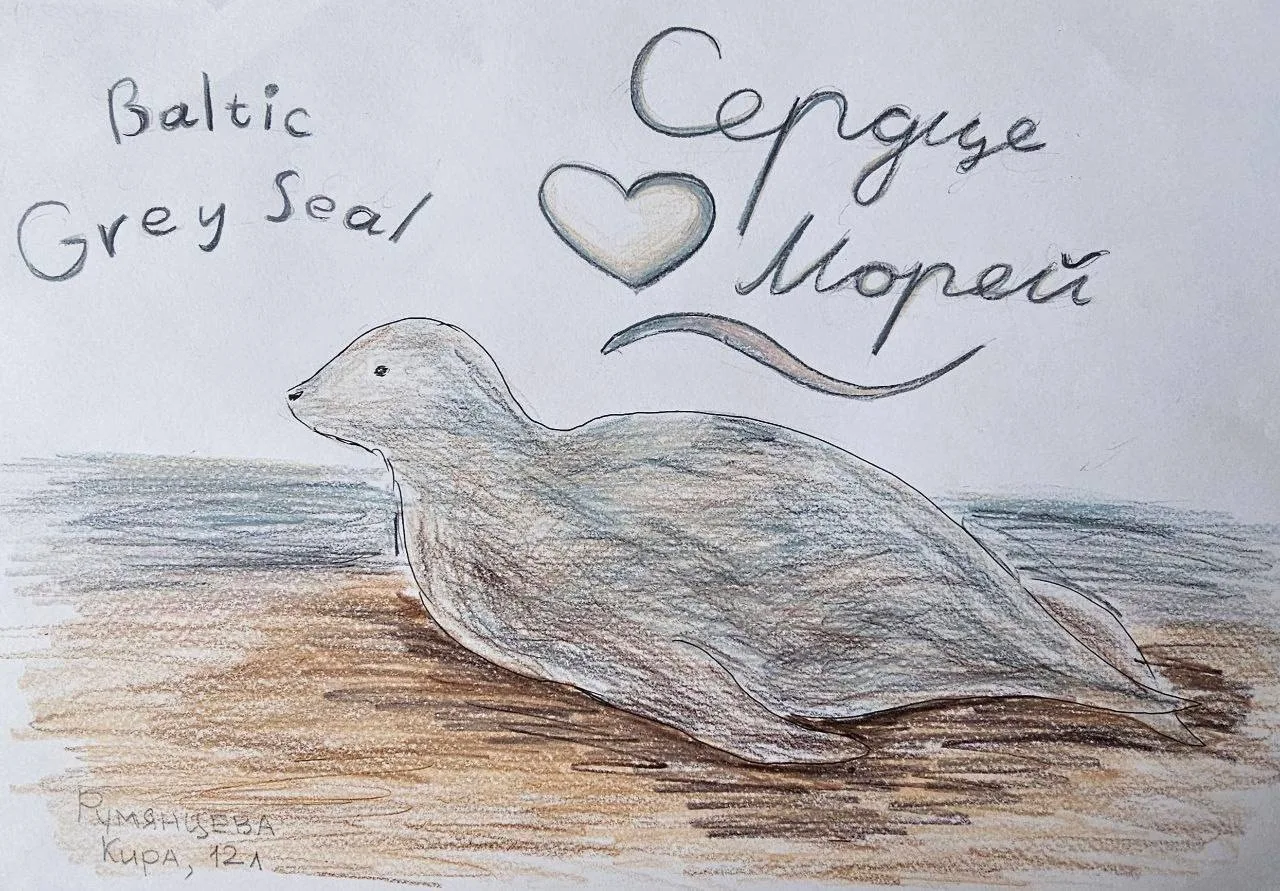 Baltic
Grey Seal
Сердце
Морей
Румянцева
Кира, 12л